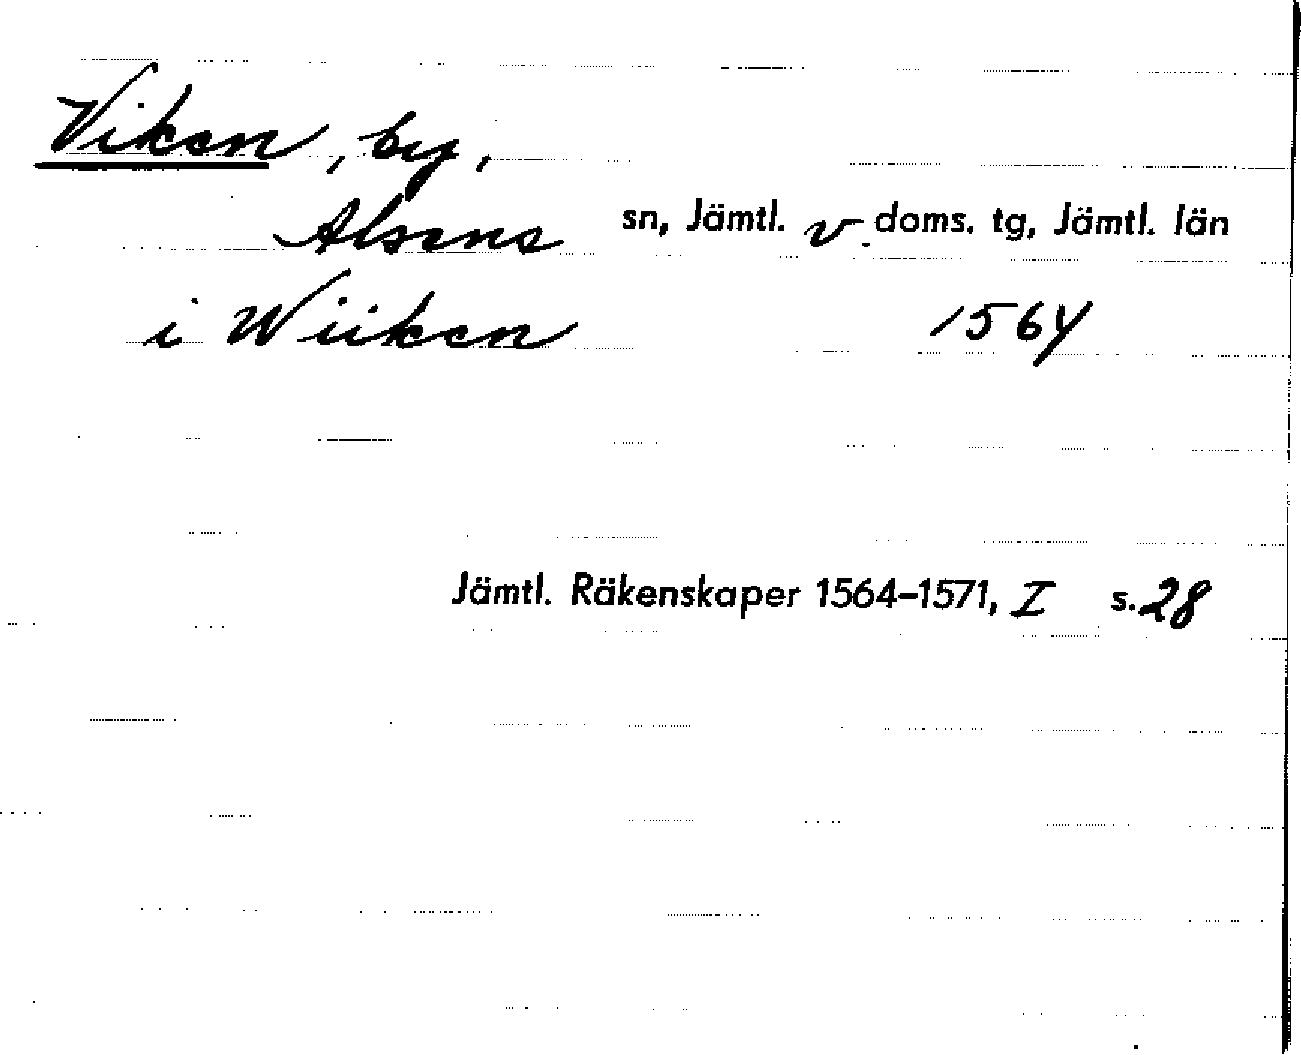 Viken, by,
Alsens sn, Jämtl. v doms. tg, Jämtl. län
i Wiiken 1564
Jämtl. Räkenskaper 1564–1571, I s. 28